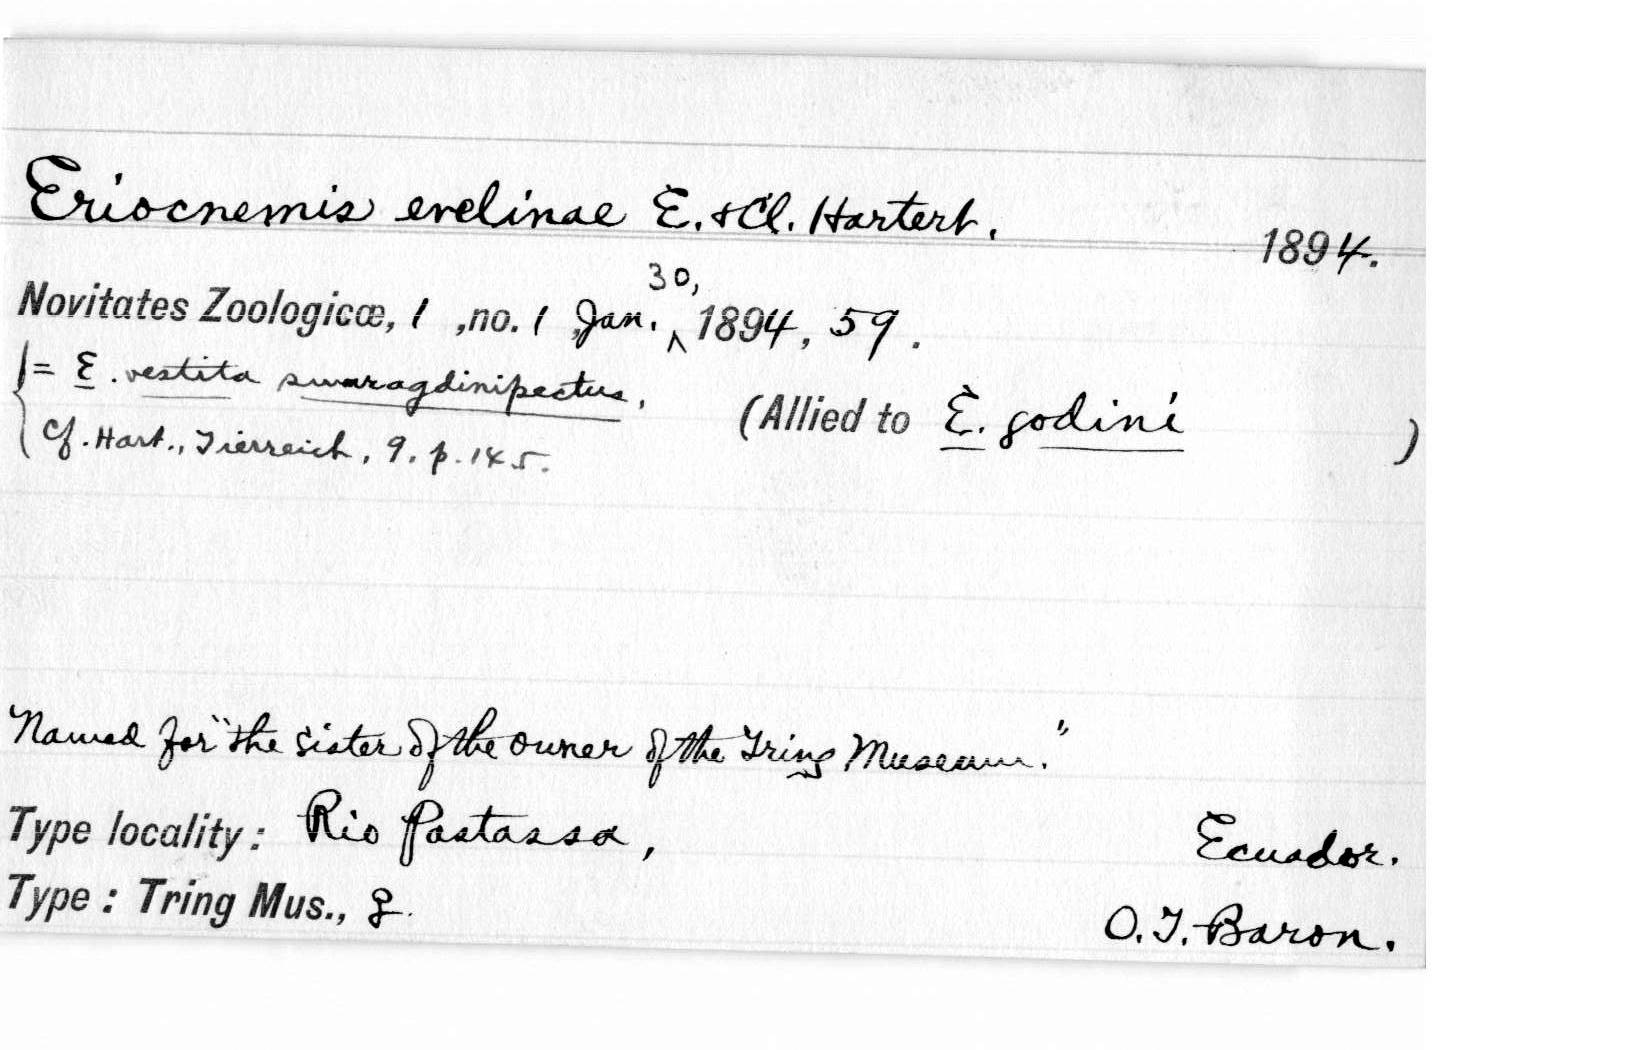 Eriocnemis evelinae E. & Cl. Hartert. 1894.
Novitates Zoologicæ, 1 ,no. 1 ,Jan. 30, 1894, 59.
= E. vestita smaragdinipectus,
(Allied to E. godini )
Cf. Hart., Tierreich, 9. p. 145.
Named for "the sister of the owner of the Tring Museum."
Type locality: Rio Pastassa, Ecuador.
Type: Tring Mus., ♀. O. T. Baron.